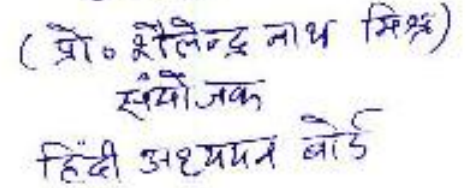 (प्रो० शैलेन्द्र नाथ मिश्र)
संयोजक
हिंदी अध्ययन बोर्ड